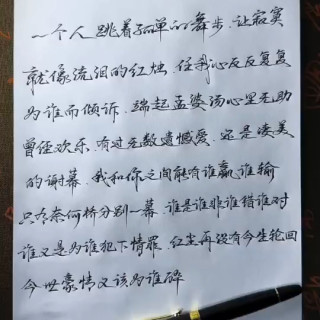 一个人跳着孤单的舞步.让寂寞
就像流泪的红烛.任我沁反反复复
为谁而倾诉.端起孟婆汤心里无助
曾经欢乐.有过无数遗憾爱.还是凄美
的谢幕.我和你之间能有谁赢谁输
只今奈何桥分别一幕.谁是谁非谁错谁对
谁又是为谁犯下情罪.红尘再没有今生轮回
今世豪情又该为谁醉